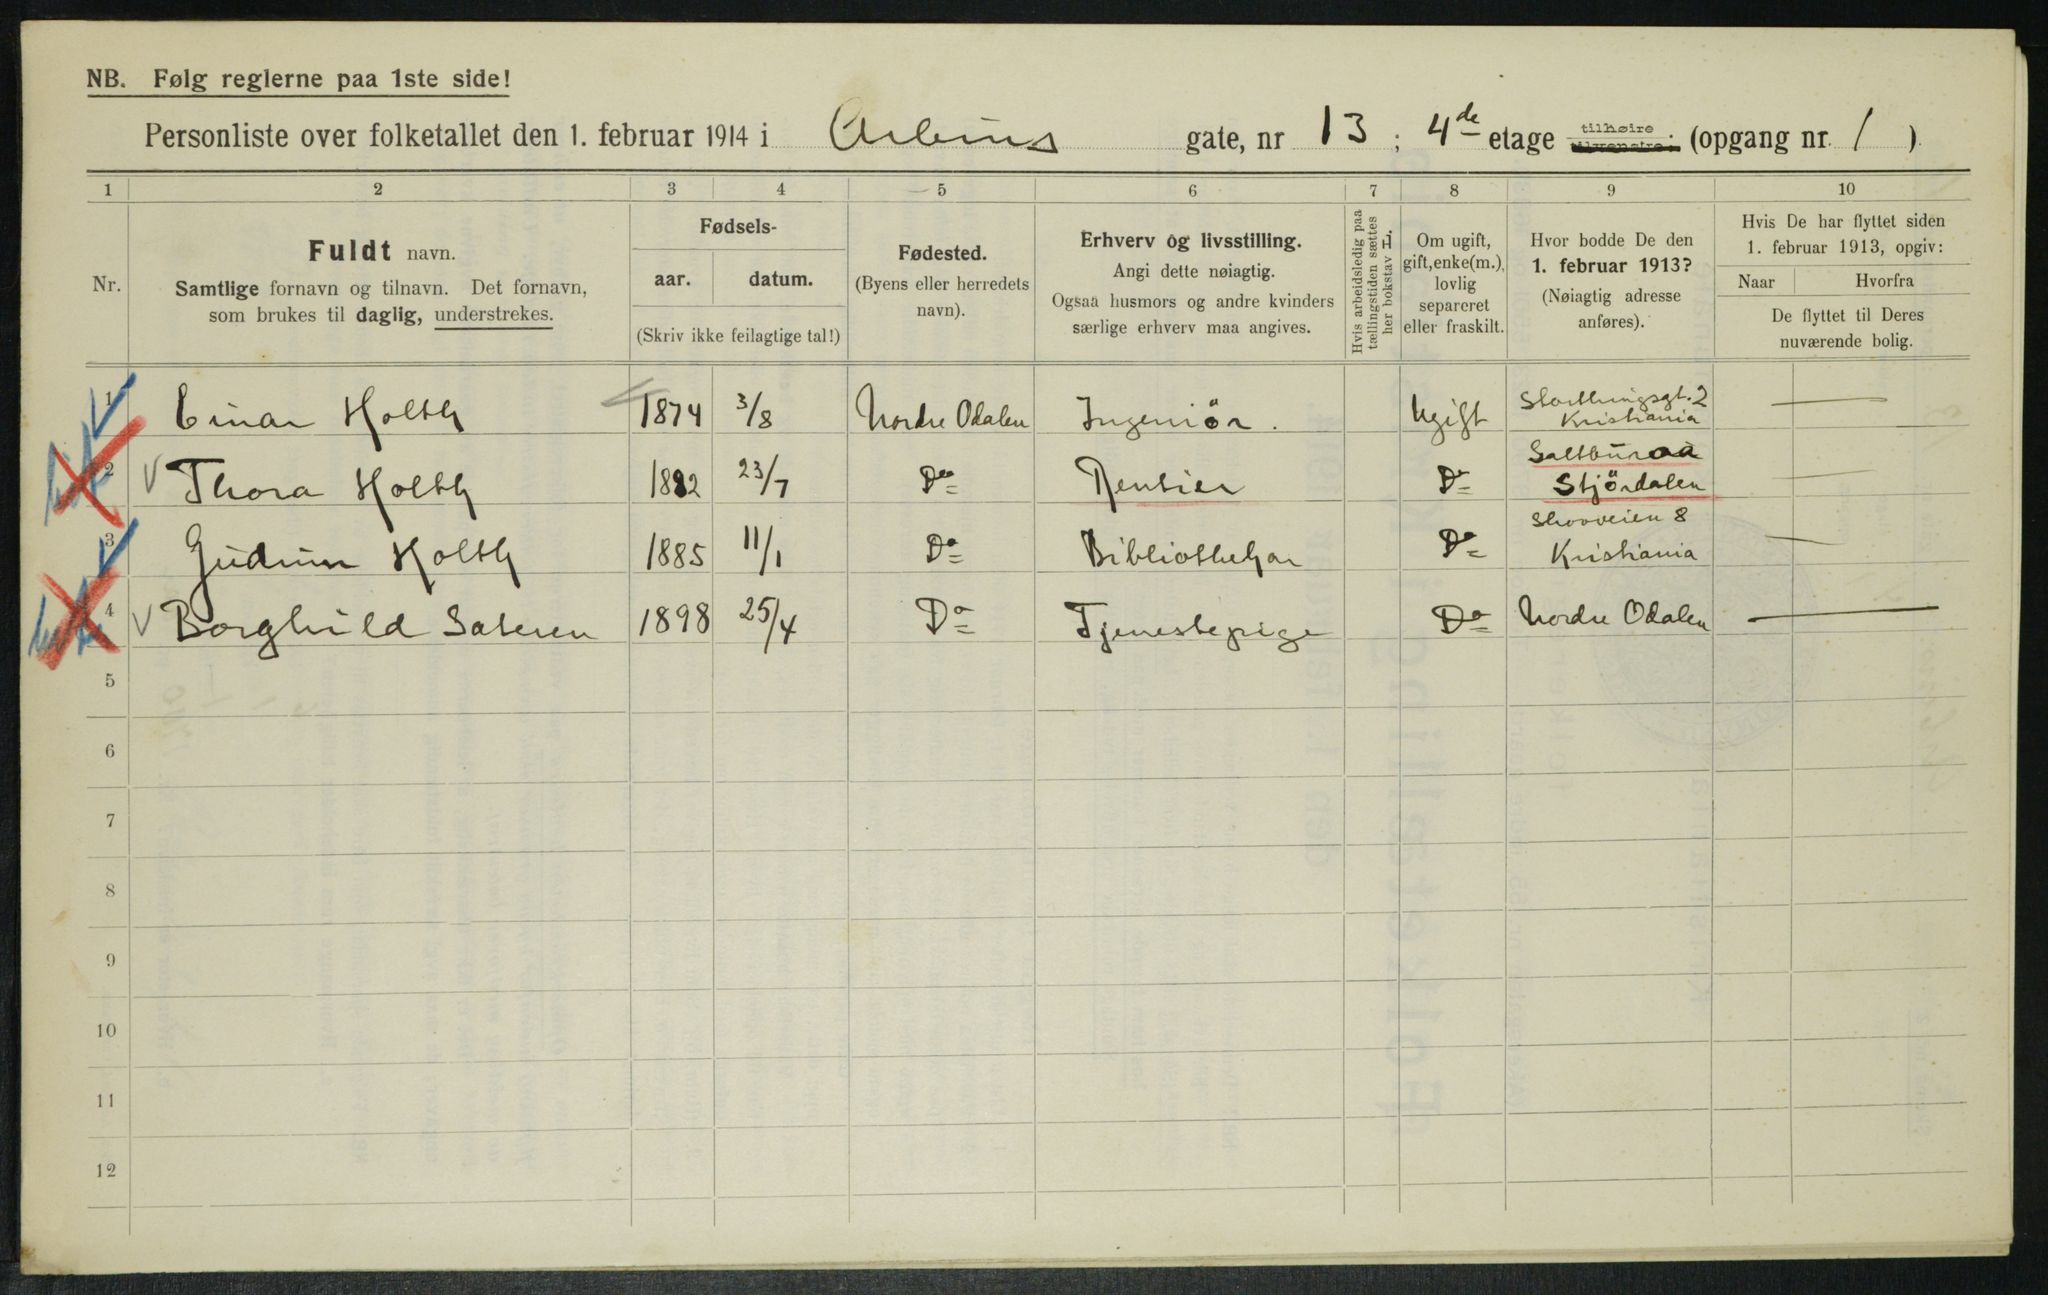 NB. Følg reglerne paa 1ste side!
Personliste over folketallet den 1. februar 1914 i Arbins gate, nr 13 ; 4de etage tilhøire (opgang nr. 1 ).
1 2 3 4 5 6 7 8 9 10
Nr.
Fuldt navn.
Samtlige fornavn og tilnavn. Det fornavn,
som brukes til daglig, understrekes.
Fødsels-
aar. datum.
(Skriv ikke feilagtige tal!)
Fødested.
(Byens eller herredets
navn).
Erhverv og livsstilling.
Angi dette nøiagtig.
Ogsaa husmors og andre kvinders
særlige erhverv maa angives.
Hvis arbeidsledig paa
tællingstiden sættes
her bokstav L.
Om ugift,
gift, enke(m.),
lovlig
separeret
eller fraskilt.
Hvor bodde De den
1. februar 1913?
(Nøiagtig adresse
anføres).
Hvis De har flyttet siden
1. februar 1913, opgiv:
Naar Hvorfra
De flyttet til Deres
nuværende bolig.
1 Einar Holth 1874 3/8 Nordre Odalen Ingeniör. Ugift Storthingsgt. 2
Kristiania —
2 V Thora Holth 1882 23/7 Do Rentier Do
Stjördalen —
3 Gudrun Holth 1885 11/1 Do Bibliothekar Do Skovveien 8
Kristiania —
4 V Borghild Sæteren 1898 25/4 Do Tjenestepige Do Nordre Odalen —
5
6
7
8
9
10
11
12